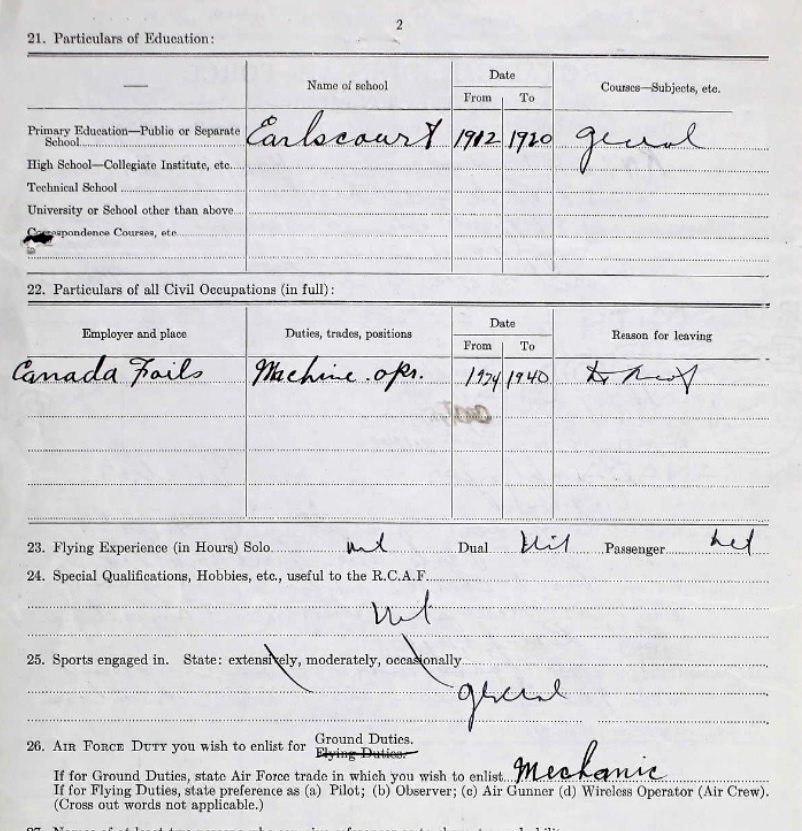 2
21. Particulars of Education:
— Name of school Date Courses—Subjects, etc.
From To
Primary Education—Public or Separate
School Earlscourt 1912 1920 general
High School—Collegiate Institute, etc.
Technical School
University or School other than above
Correspondence Courses, etc.
22. Particulars of all Civil Occupations (in full):
Employer and place Duties, trades, positions Date Reason for leaving
From To
Canada Foils Machine opr. 1924 1940
23. Flying Experience (in Hours) Solo nil Dual Nil Passenger nil
24. Special Qualifications, Hobbies, etc., useful to the R.C.A.F.
Nil
25. Sports engaged in. State: extensively, moderately, occasionally
general
26. AIR FORCE DUTY you wish to enlist for Ground Duties.
Flying Duties.
If for Ground Duties, state Air Force trade in which you wish to enlist Mechanic
If for Flying Duties, state preference as (a) Pilot; (b) Observer; (c) Air Gunner (d) Wireless Operator (Air Crew).
(Cross out words not applicable.)